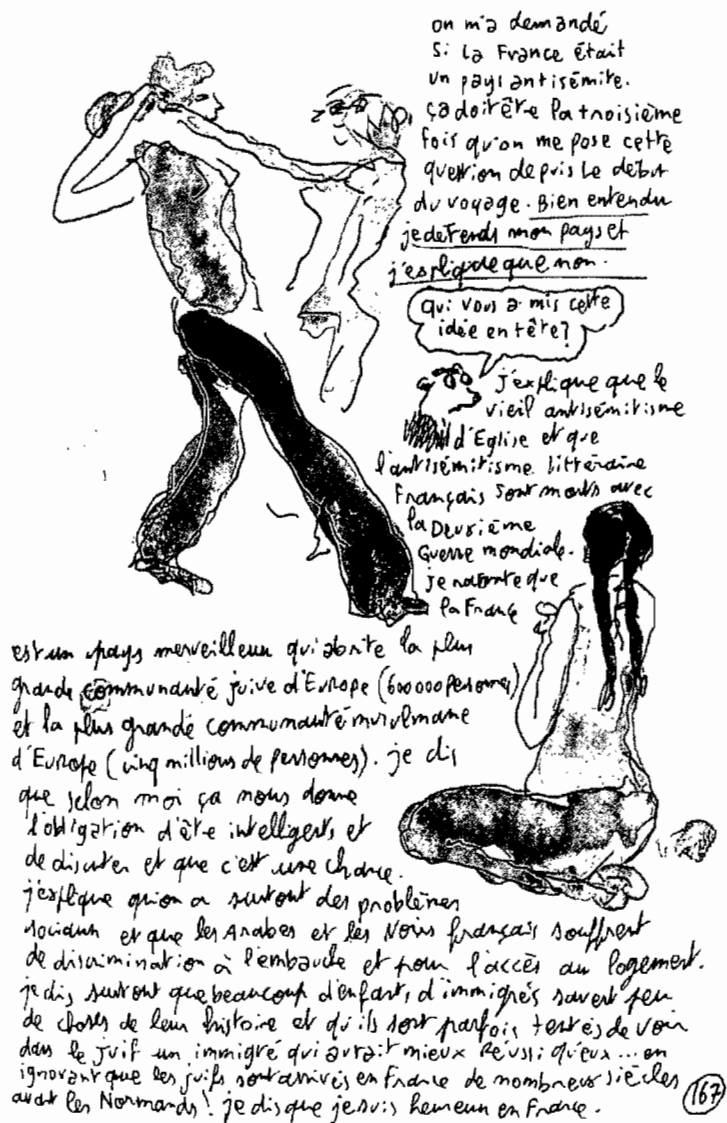 on m'a demandé
si la France était
un pays antisémite.
ça doit être la troisième
fois qu'on me pose cette
question depuis le début
du voyage. Bien entendu
je défends mon pays et
j'explique que non.
qui vous a mis cette
idée en tête?
j'explique que le
vieil antisémitisme
d'Eglise et que
l'antisémitisme littéraire
Français sont morts avec
la Deuxième
Guerre mondiale.
je raconte que
la France
est un pays merveilleux qui abrite la plus
grande communauté juive d'Europe (600 000 personnes)
et la plus grande communauté musulmane
d'Europe (cinq millions de personnes). je dis
que selon moi ça nous donne
l'obligation d'être intelligents et
de discuter et que c'est une chance.
j'explique qu'on a surtout des problèmes
sociaux et que les Arabes et les Noirs français souffrent
de discrimination à l'embauche et pour l'accès au logement.
je dis surtout que beaucoup d'enfants d'immigrés savent peu
de choses de leur histoire et qu'ils sont parfois tentés de voir
dans le juif un immigré qui aurait mieux réussi qu'eux... en
ignorant que les juifs sont arrivés en France de nombreux siècles
avant les Normands! je dis que je suis heureux en France.
167